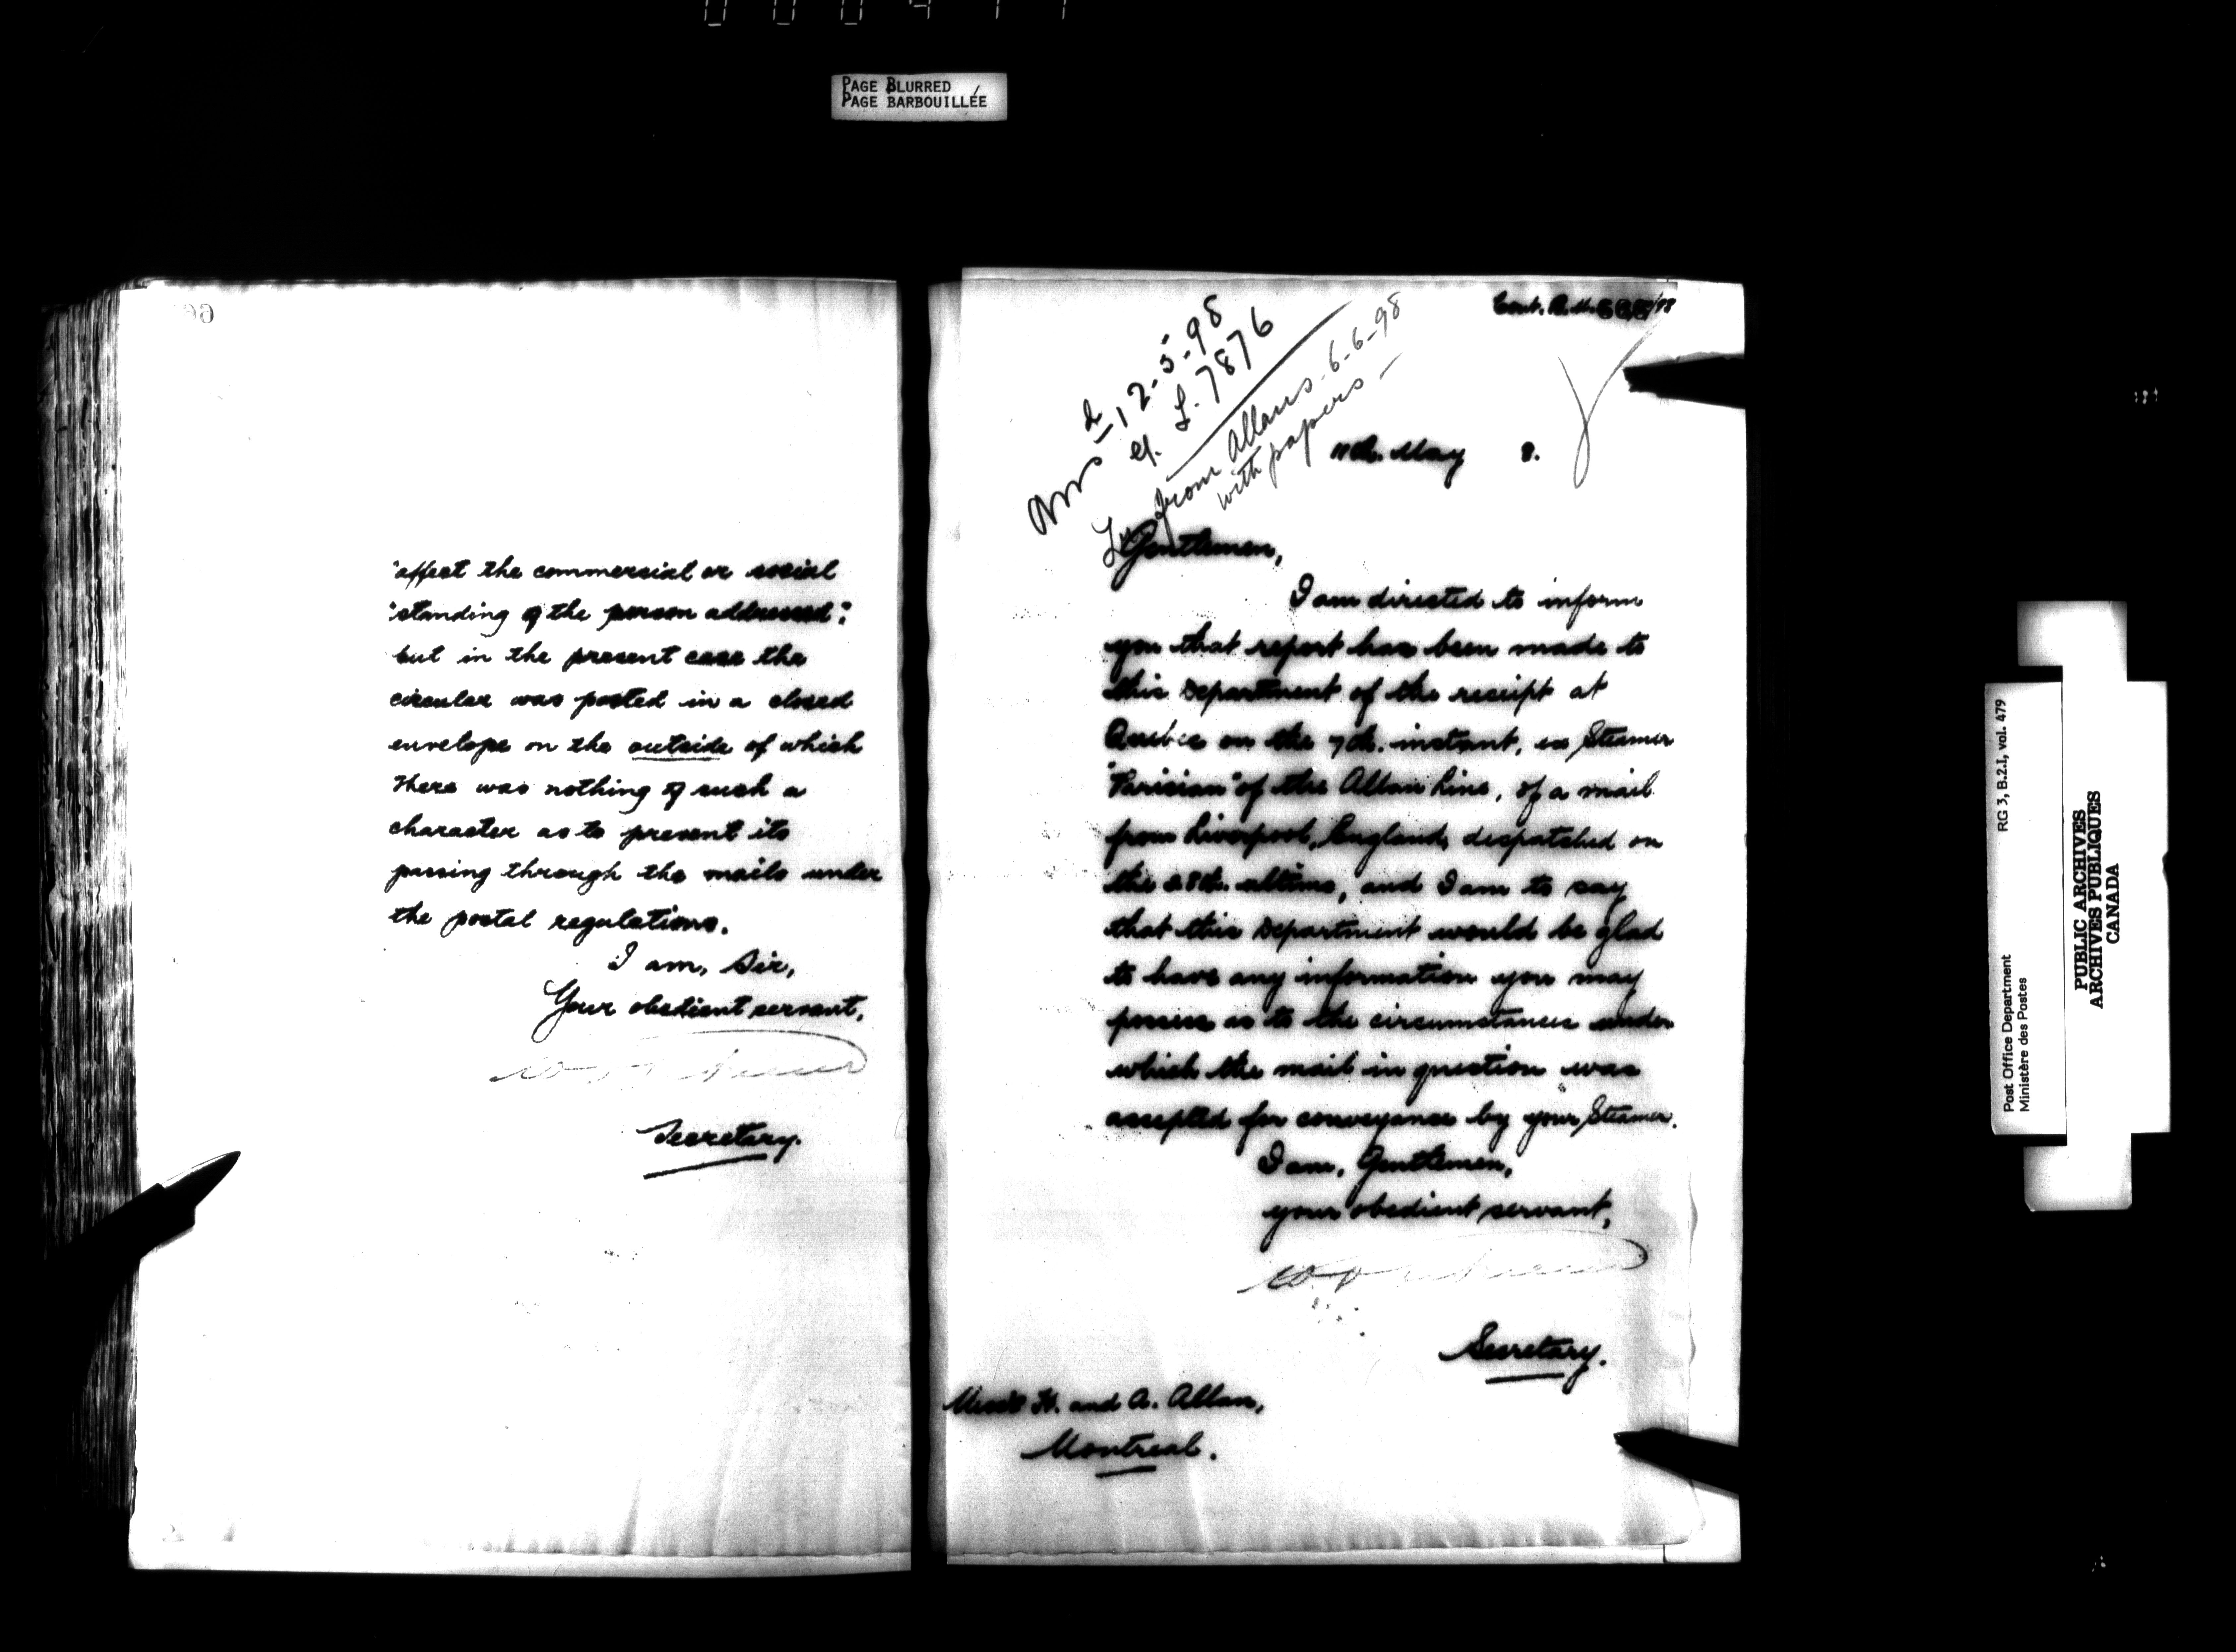 PAGE BLURRED
PAGE BARBOUILLÉE
"affect the commercial or social
"standing of the person addressed";
but in the present case the
circular was posted in a closed
envelope on the outside of which
there was nothing of such a
character as to prevent its
passing through the mails under
the postal regulations.
I am, Sir,
Your obedient servant,
Secretary.
12-5-98
L. 7876
from Allans 6-6-98
with papers
11th. May 8.
Gentlemen,
I am directed to inform
you that report has been made to
this Department of the receipt at
Quebec on the 7th. instant, ex Steamer
"Parisian" of the Allan Line, of a mail
from Liverpool, England, despatched on
the 28th. ultimo, and I am to say
that this Department would be glad
to have any information you may
possess as to the circumstances under
which the mail in question was
accepted for conveyance by your Steamer.
I am, Gentlemen,
your obedient servant,
Secretary.
Messrs H. and A. Allan,
Montreal.
Post Office Department RG 3, B.2.I, vol. 479
Ministère des Postes
PUBLIC ARCHIVES
ARCHIVES PUBLIQUES
CANADA